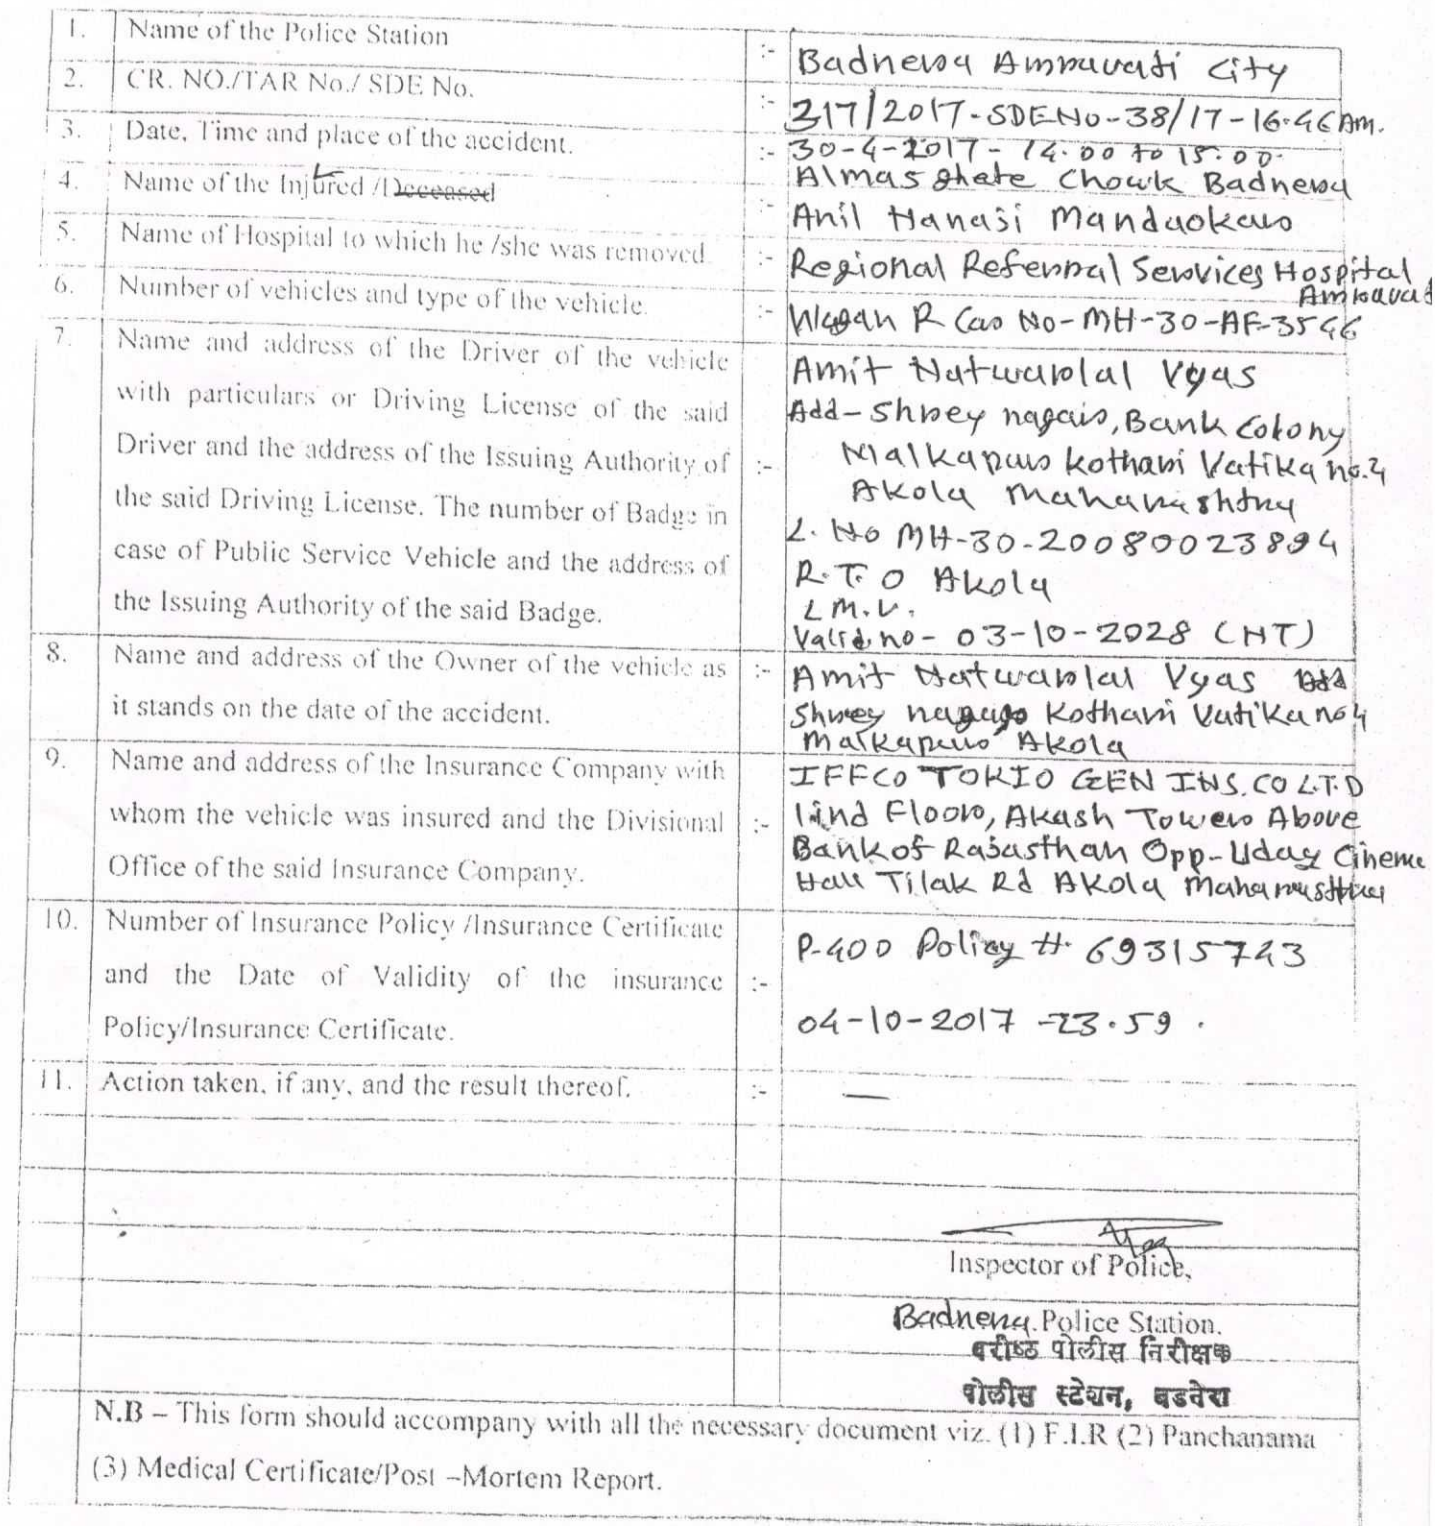 1. Name of the Police Station :- Badnera Amravati City
2. CR. NO./TAR No./ SDE No. :- 317/2017-SDENo-38/17-16.46 Am.
3. Date, Time and place of the accident. :- 30-4-2017- 14.00 to 15.00.
Almas ghate Chowk Badnera
4. Name of the Injured /Deceased :- Anil Hanaji Mandaokar
5. Name of Hospital to which he /she was removed. :- Regional Referral Services Hospital
Amravati
6. Number of vehicles and type of the vehicle. :- Wagan R Car No-MH-30-AF-3546
7. Name and address of the Driver of the vehicle
with particulars or Driving License of the said
Driver and the address of the Issuing Authority of
the said Driving License. The number of Badge in
case of Public Service Vehicle and the address of
the Issuing Authority of the said Badge. :-
Amit Natwarlal Vyas
Add- Shrey nagar, Bank Colony
Malkapur Kothari Vatika no.4
Akola Maharashtra
L. No MH-30-20080023894
R.T.O Akola
L M.V.
Valid.no- 03-10-2028 (NT)
8. Name and address of the Owner of the vehicle as
it stands on the date of the accident. :-
Amit Natwarlal Vyas Add
Shrey nagar Kothari Vatika no 4
Malkapur Akola
9. Name and address of the Insurance Company with
whom the vehicle was insured and the Divisional
Office of the said Insurance Company. :-
IFFCO TOKIO GEN INS. CO L.T.D
IInd Floor, Akash Tower Above
Bank of Rajasthan Opp-Uday Cinema
Hall Tilak Rd Akola Maharashtra
10. Number of Insurance Policy /Insurance Certificate
and the Date of Validity of the insurance
Policy/Insurance Certificate. :-
P-400 Policy #. 69315743
04-10-2017 -23.59 .
11. Action taken, if any, and the result thereof. :- —
Inspector of Police,
Badnera Police Station.
वरीष्ठ पोलीस निरीक्षक
पोलीस स्टेशन, बडनेरा
N.B – This form should accompany with all the necessary document viz. (1) F.I.R (2) Panchanama
(3) Medical Certificate/Post –Mortem Report.